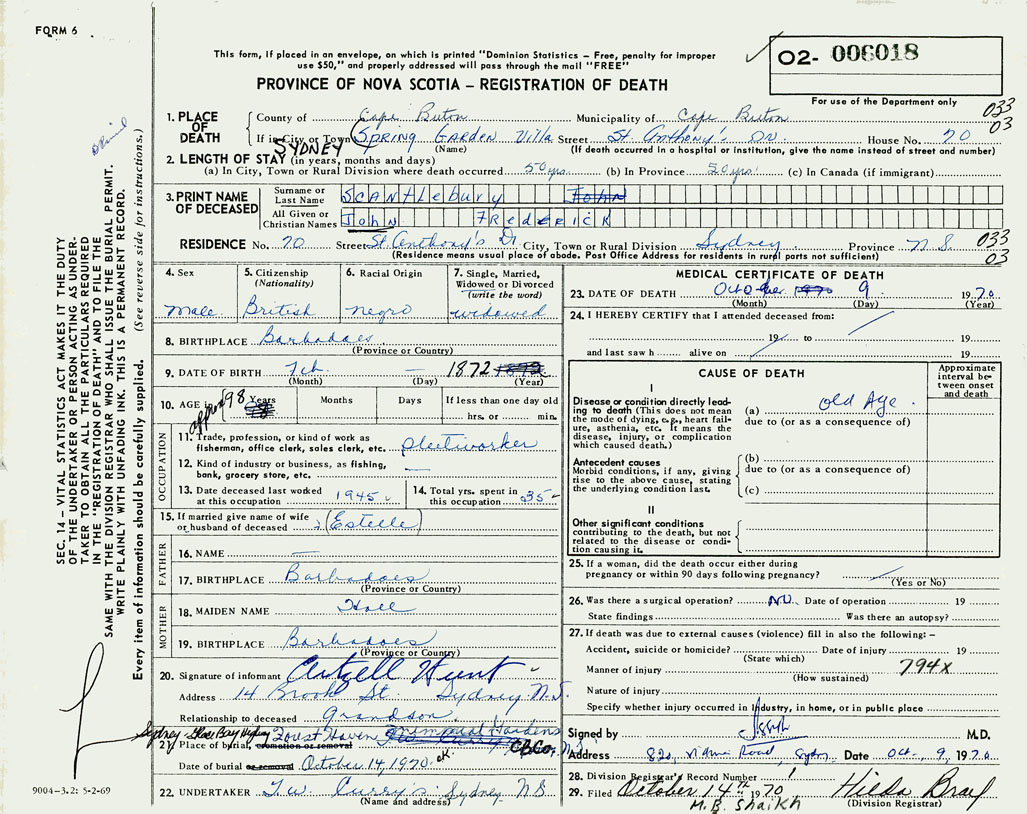 FORM 6
This form, if placed in an envelope, on which is printed "Dominion Statistics – Free, penalty for improper
use $50," and properly addressed will pass through the mail "FREE"
PROVINCE OF NOVA SCOTIA – REGISTRATION OF DEATH
O2- 006018
For use of the Department only
033
03
1. PLACE OF DEATH
County of Cape Breton Municipality of Cape Breton
If in City or Town Spring Garden Villa Street St. Anthony's Dr House No. 70
SYDNEY
(Name) (If death occurred in a hospital or institution, give the name instead of street and number)
2. LENGTH OF STAY (in years, months and days)
(a) In City, Town or Rural Division where death occurred 50 yrs. (b) In Province 50 yrs. (c) In Canada (if immigrant)
3. PRINT NAME OF DECEASED
Surname or Last Name Scantlebury John
All Given or Christian Names John Frederick
RESIDENCE No. 70 Street St. Anthony's Dr City, Town or Rural Division Sydney Province N.S. 033
03
(Residence means usual place of abode. Post Office Address for residents in rural parts not sufficient)
4. Sex
Male
5. Citizenship
(Nationality)
British
6. Racial Origin
Negro
7. Single, Married,
Widowed or Divorced
(write the word)
widowed
8. BIRTHPLACE Barbadoes
(Province or Country)
9. DATE OF BIRTH – 1872
(Month) (Day) (Year)
10. AGE approx 98 Years Months Days If less than one day old
hrs. or min.
OCCUPATION
11. Trade, profession, or kind of work as
fisherman, office clerk, sales clerk, etc. Steelworker
12. Kind of industry or business, as fishing,
bank, grocery store, etc. –
13. Date deceased last worked
at this occupation 1945
14. Total yrs. spent in
this occupation 35
15. If married give name of wife
or husband of deceased (Estelle)
FATHER
16. NAME –
17. BIRTHPLACE Barbadoes
(Province or Country)
MOTHER
18. MAIDEN NAME Hall
19. BIRTHPLACE Barbadoes
(Province or Country)
20. Signature of informant Hunt
Address 14 Brook St. Sydney N.S.
Relationship to deceased Grandson
Sydney Glace Bay Highway Forest Haven Memorial Gardens
21. Place of burial, cremation or removal C.B.Co. N.S.
Date of burial or removal October 14, 1970 OK
22. UNDERTAKER T.W. Curry's Sydney N.S
(Name and address)
MEDICAL CERTIFICATE OF DEATH
23. DATE OF DEATH October 9 1970
(Month) (Day) (Year)
24. I HEREBY CERTIFY that I attended deceased from:
19 to 19
and last saw h alive on 19
CAUSE OF DEATH
Approximate
interval be-
tween onset
and death
I
Disease or condition directly lead-
ing to death (This does not mean
the mode of dying, e.g., heart fail-
ure, asthenia, etc. It means the
disease, injury, or complication
which caused death.)
(a) Old Age.
due to (or as a consequence of)
Antecedent causes
Morbid conditions, if any, giving
rise to the above cause, stating
the underlying condition last.
(b)
due to (or as a consequence of)
(c)
II
Other significant conditions
contributing to the death, but not
related to the disease or condi-
tion causing it.
25. If a woman, did the death occur either during
pregnancy or within 90 days following pregnancy?
(Yes or No)
26. Was there a surgical operation? No Date of operation 19
State findings Was there an autopsy?
27. If death was due to external causes (violence) fill in also the following: –
Accident, suicide or homicide? Date of injury 19
(State which)
Manner of injury 794X
(How sustained)
Nature of injury
Specify whether injury occurred in Industry, in home, or in public place
Signed by M.D.
Address Road, Sydn. Date Oct. 9, 1970
28. Division Registrar's Record Number 1
29. Filed October 14th 1970 Hilda
M.B. Shaikh (Division Registrar)
SEC. 14 – VITAL STATISTICS ACT MAKES IT THE DUTY
OF THE UNDERTAKER OR PERSON ACTING AS UNDER-
TAKER TO OBTAIN ALL THE PARTICULARS REQUIRED
IN THE "REGISTRATION OF DEATH" AND TO FILE THE
SAME WITH THE DIVISION REGISTRAR WHO SHALL ISSUE THE BURIAL PERMIT.
WRITE PLAINLY WITH UNFADING INK. THIS IS A PERMANENT RECORD.
Every item of information should be carefully supplied. (See reverse side for instructions.)
9004-3.2: 5-2-69